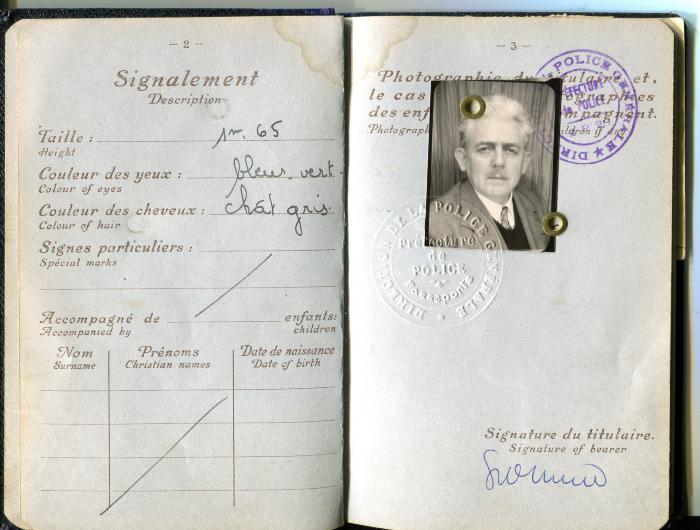 — 2 —
Signalement
Description
Taille : 1m. 65
Height
Couleur des yeux : bleus vert.
Colour of eyes
Couleur des cheveux : chât gris.
Colour of hair
Signes particuliers :
Spécial marks
Accompagné de enfants:
Accompanied by children
Nom Prénoms Date de naissance
Surname Christian names Date of birth
— 3 —
Photographie du titulaire et,
le cas
des enf
Photograph children if any
POLICE GENERALE ★ DIR
PREFECTURE
de POLICE
DIRECTION DE LA POLICE GÉNÉRALE ★
Préfecture
de
POLICE
Passeports
Signature du titulaire.
Signature of bearer